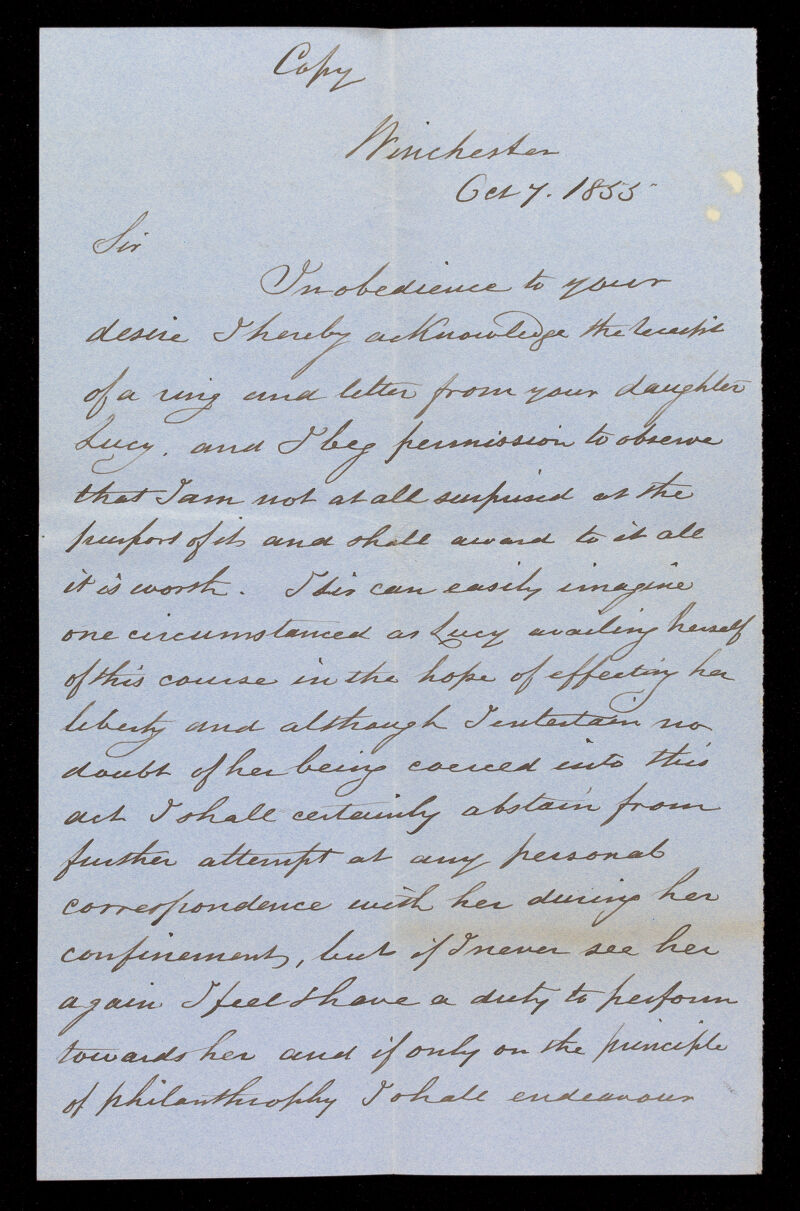 Copy
Winchester
Oct 7. 1855
Sir
In obedience to your
desire I hereby acknowledge the receipt
of a ring and letter from your daughter
Lucy. and I beg permission to observe
that I am not at all surprised at the
purport of it and shall award to it all
it is worth. I Sir can easily imagine
one circumstanced as Lucy availing herself
of this course in the hope of effecting her
liberty and although I entertain no
doubt of her being coerced into this
act I shall certainly abstain from
further attempt at any personal
correspondence with her during her
confinement, but if I never see her
again I feel I have a duty to perform
towards her and if only on the principle
of philanthrophy I shall endeavour